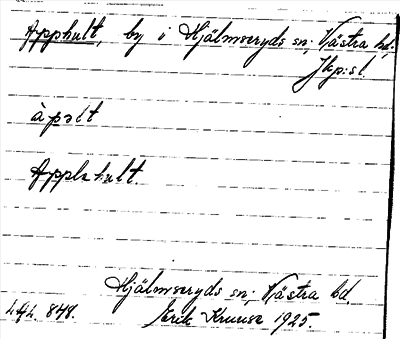 Äpphult, by i Hjälmseryds sn; Västra hd;
Jkp:s l.
àpəlt
Applahult.
Hjälmseryds sn; Västra hd.
848.
Erik Kruuse 1925.